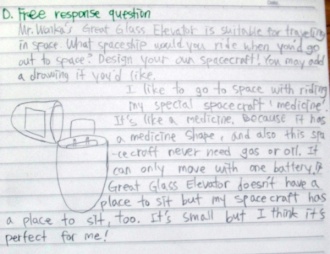 D. Free response question
Mr. Wonka's Great Glass Elevator is suitable for traveling
in space. What spaceship would you ride when you'd go
out to space? Design your own spacecraft! You may add
a drawing if you'd like.
I like to go to space with riding
my special spacecraft 'medicine'.
It's like a medicine. Because it has
a medicine shape, and also this spa
-cecroft never need gas or oil. It
can only move with one battery.
Great Glass Elevator doesn't have a
place to sit but my spacecraft has
a place to sit, too. It's small but I think it's
perfect for me!